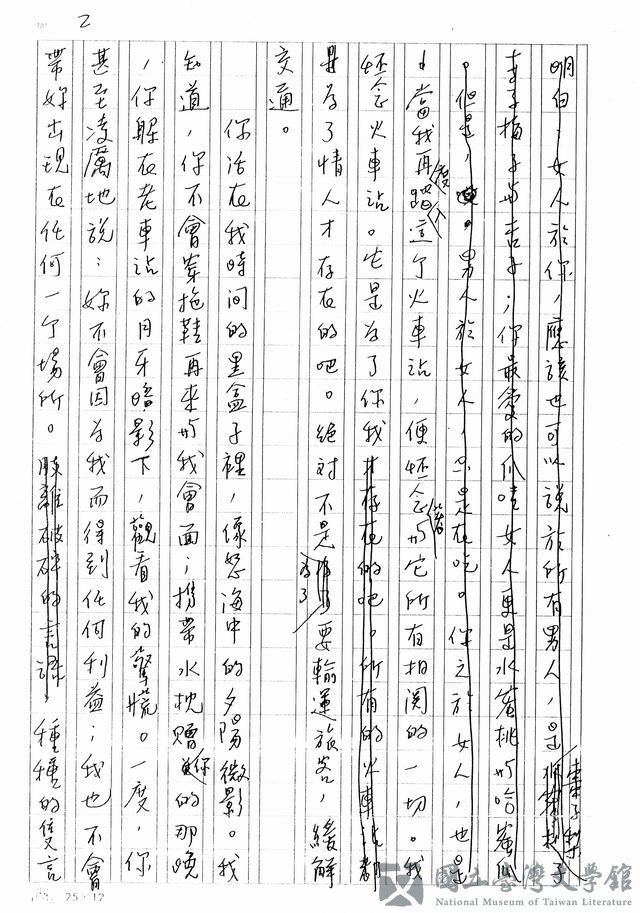 2
明白，女人於你，應該也可以說於所有男人，是
棗子梨子
李子梅子与杏子；你最愛的爪哇女人更是水蜜桃与哈蜜瓜
。但是，男人於女人，只是在吃。你之於女人，也是
。當我再度踏入這个火車站，便怀念著与它所有相関的一切。我
怀念火車站。它是为了你我才存在的吧。所有的火車站都
是为了情人才存在的吧。絕对不是为了要輸運旅客，緩解
交通。
你活在我時间的黑盒子裡，像怒海中的夕陽微影。我
知道，你不會穿拖鞋再来与我會面；携帶水枕贈你的那晚
，你躲在老車站的月牙暗影下，觀看我的驚慌。一度，你
甚至凌厲地說：妳不會因为我而得到任何利益；我也不會
帶妳出現在任何一个場所。破碎的言語，種種的隻言
25×12
國立臺灣文學館
National Museum of Taiwan Literature